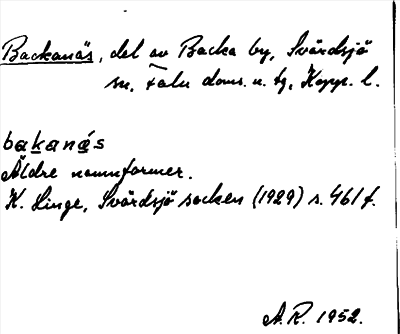 Backanäs, del av Backa by, Svärdsjö
sn, Falu doms. n. tg, Kopp. l.
bakanä́s
Äldre namnformer.
K. Linge, Svärdsjö socken (1929) s. 461 f.
A.R. 1952.